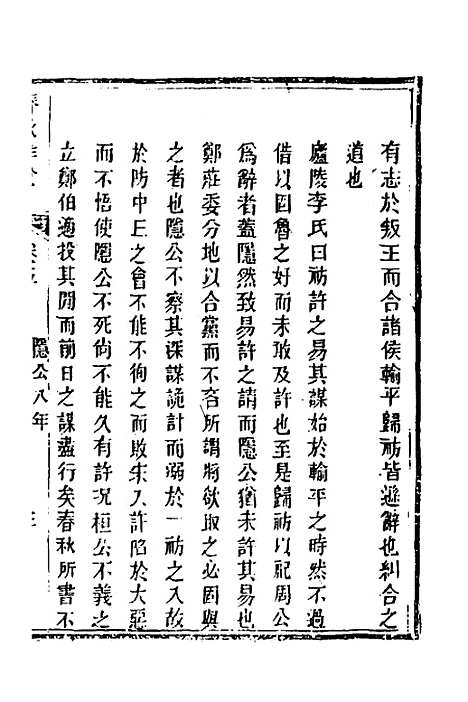 有志於叛王而合諸侯輸平歸祊皆遜辭也糾合之
道也
廬陵李氏曰祊許之易其謀始於輸平之時然不過
借以固魯之好而未敢及許也至是歸祊以祀周公
爲辭者蓋隱然致易許之請而隱公猶未許其易也
鄭莊委分地以合黨而不吝所謂將欲取之必固與
之者也隱公不察其深謀詭計而溺於一祊之入故
於防中丘之會不能不徇之而敗宋入許陷於大惡
而不悟使隱公不死尚不能久有許况桓公不義之
立鄭伯適投其間而前日之謀盡行矣春秋所書不
隱公八年